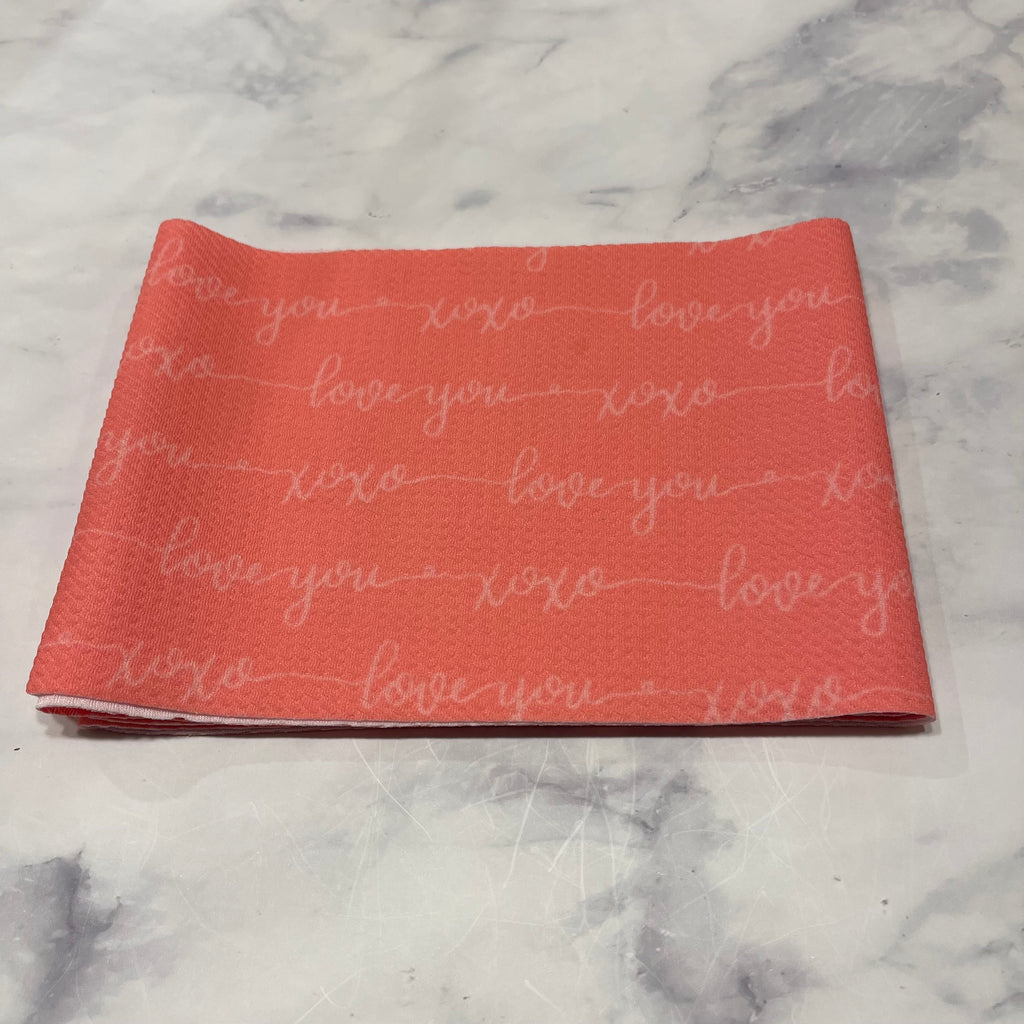 love you xoxo love you
xoxo love you xoxo lo
you xoxo love you xo
love you xoxo love yo
xoxo love you xoxo